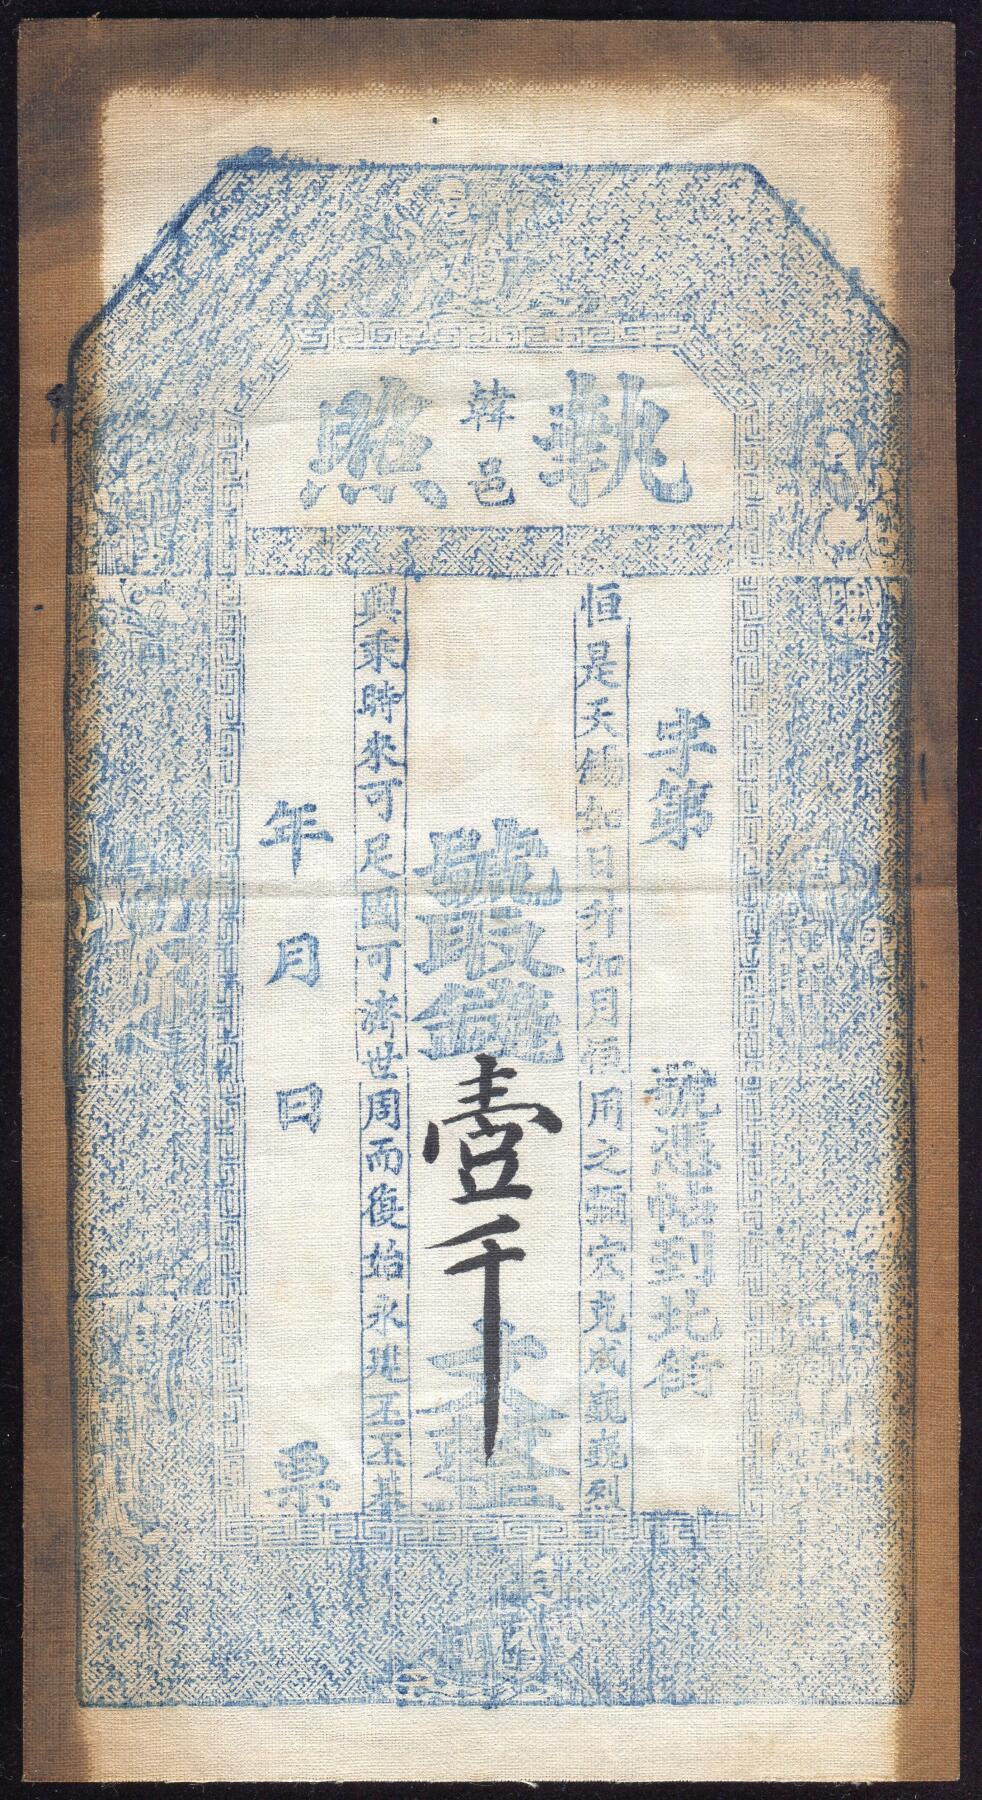 執照
韓邑
字第 號憑帖到北街
恒是天錫如日升如月恒用之彌宏克成巍巍烈
號取錢壹千文整
興乘時來可足國可濟世周而復始永建丕丕基
年月日票